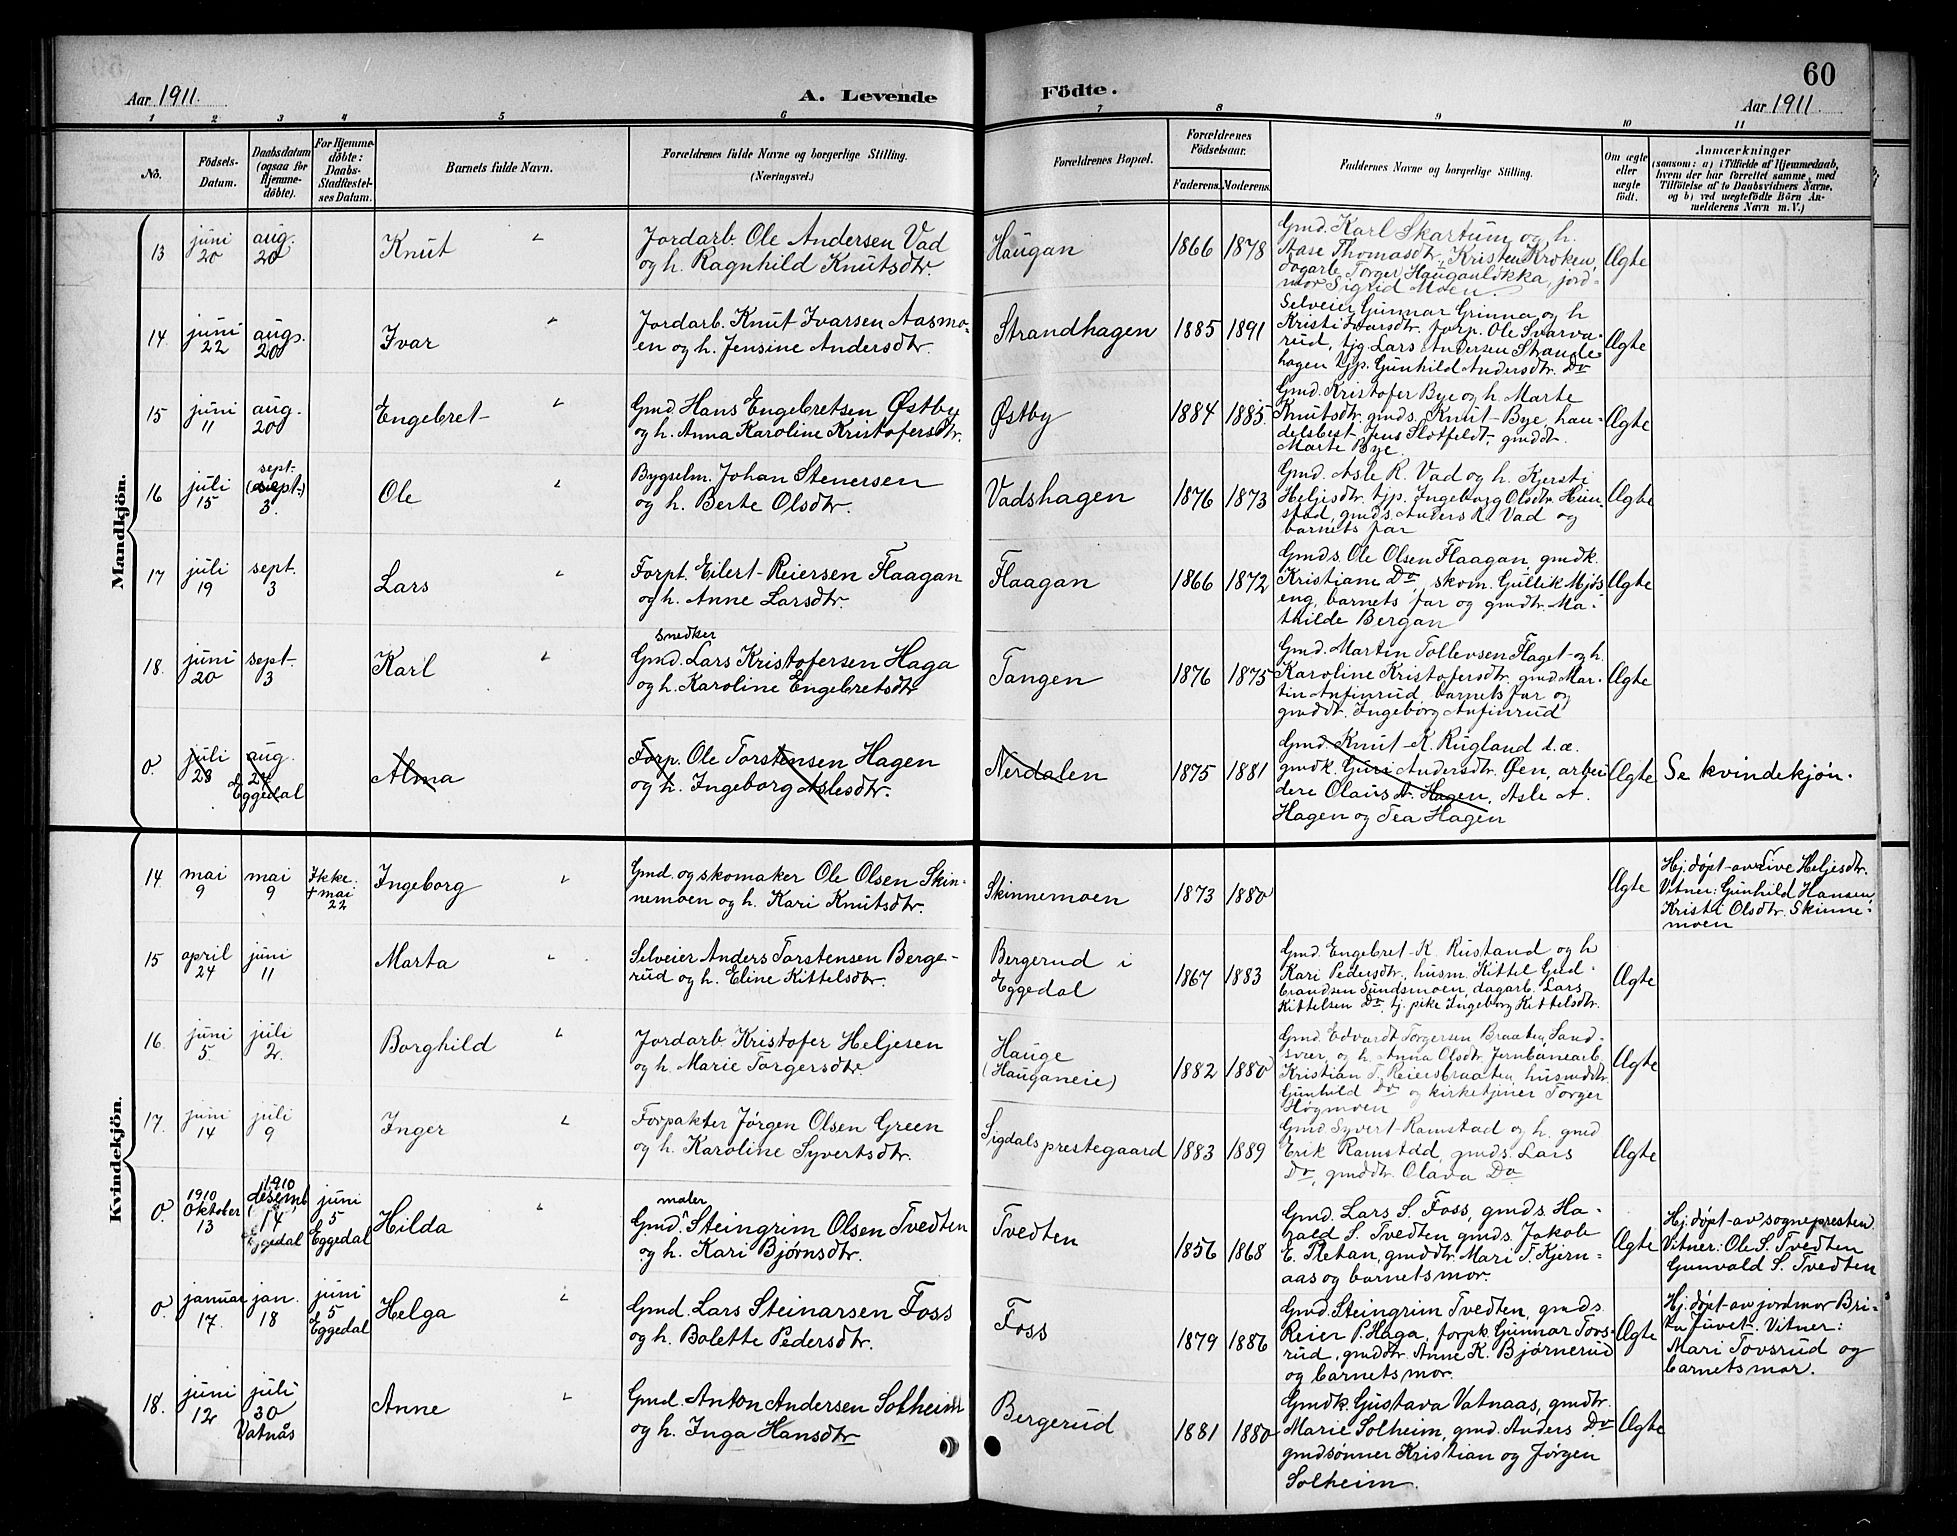 60
Aar 1911.
A. Levende
Födte.
Aar 1911
1 2 3 4 5 6 7 8 9 10 11
No.
Födsels-
Datum.
Daabsdatum
(ogsaa for
Hjemme-
döbte).
For Hjemme-
döbte:
Daabs-
Stadfæstel-
ses Datum.
Barnets fulde Navn.
Forældrenes fulde Navne og borgerlige Stilling.
(Næringsvei.)
Forældrenes Bopæl.
Forældrenes
Födselsaar.
Faderens. Moderens.
Faddernes Navne og borgerlige Stilling.
Om ægte
eller
uægte
födt.
Anmærkninger
(saasom: a) i Tilfælde af Hjemmedaab,
hvem der har forrettet samme, med
Tilföielse af to Daabsvidners Navne,
og b) ved uægtefödte Börn An-
melderens Navn m. V.)
Mandkjön.
13
juni
20
aug.
20
Knut
Jordarb. Ole Andersen Vad
og h. Ragnhild Knutsdtr.
Haugan
1866 1878
Gmd. Karl Skartum og h.
Aase Thomasdtr. Kristen Kroken,
dagarb. Torger Hauganløkka, jord-
mor Sigrid Moen.
Ægte
14.
juni
22
augs.
20
Ivar
Jordarb. Knut Ivarsen Aasmo-
en og h. Jensine Andersdtr.
Strandhagen
1885 1891
Selveier Gunnar Grinna og h
Kristi Ivarsdtr. forp. Ole Svarva-
rud, tjg Lars Andersen Strande-
hagen tjp. Gunhild Andersdtr. Do
Ægte
15
juni
11
aug.
20
Engebret
Gmd. Hans Engebretsen Østby
og h. Anna Karoline Kristofersdtr.
Østby
1884 1885
Gmd. Kristofer Bye og h. Marte
Knutsdtr. gmds. Knut Bye, han-
delsbest. Jens Slotfeldt, gmddt.
Marte Bye.
Ægte
16
juli
15
sept.
(sept.)
3.
Ole
Bygselm. Johan Stenersen
og h. Berte Olsdtr.
Vadshagen
1876 1873
Gmd. Asle R. Vad og h. Kjersti
Heljesdtr. tjp. Ingeborg Olsdtr. Hien-
stad, gmds. Anders R. Vad og
barnets far
Ægte
17
juli
19
sept.
3
Lars
Forpt. Eilert Reiersen Flaagan
og h. Anne Larsdtr.
Flaagan
1866 1872
Gmds. Ole Olsen Flaagan, gmdk.
Kristiane Do, skom. Gullik Mjøs
eng, barnets far og gmdtr. Ma-
thilde Bergan
Ægte
18.
juni
20
sept.
3
Karl
snedker
Gmd. Lars Kristofersen Haga
og h. Karoline Engebretsdtr
Tangen
1876 1875
Gmd. Martin Tollevsen Flaget og h.
Karoline Kristofersdtr. gmd Mar-
tin Anfinrud barnets far og
gmddt. Ingeborg Anfinrud
Ægte
0.
juli
28
aug.
27
Eggedal
Alma
Forp. Ole Torstensen Hagen
og h. Ingeborg Aslesdtr.
Nerdalen
1875 1881
Gmd. Knut K. Rugland d. æ.
gmdk. Guri Andersdtr. Øen, arbei
dere Olaus A. Hagen, Asle A.
Hagen og Tea Hagen
Ægte
Se kvindekjøn.
Kvindekjön.
14.
mai
9
mai
9
Ikke.
+ mai
22
Ingeborg
Gmd og skomaker Ole Olsen Skin-
nemoen og h. Kari Knutsdtr.
Skinnemoen
1873 1880
Ægte
Hj. døpt av Live Heljesdtr.
Vitner: Gunhild Hansen,
Kristi Olsdtr. Skinne-
moen
15
april
24
juni
11
Marta
Selveier Anders Torstensen Berge-
rud og h. Eline Kittelsdtr.
Bergerud i
Eggedal
1867 1883
Gmd Engebret K. Rustand og h
Kari Pedersdtr. husm. Kittel Gud-
brandsen Sundsmoen, dagarb. Lars
Kittelsen Do, tj. pike Ingeborg Kittelsdtr.
Ægte
16.
juni
5
juli
2.
Borghild
Jordarb Kristofer Heljesen
og h. Marie Torgersdtr.
Hauge
(Hauganeie)
1882 1880
Gmd Edvardt Torgersen Braaten, Sand-
svær, og h. Anna Olsdtr. Jernbanearb.
Kristian T. Reiersbraaten, husmddtr
Gunhild Do og kirketjener Torger
Høgmoen
Ægte
17.
juni
14
juli
9
Inger
Forpakter Jørgen Olsen Green
og h. Karoline Syvertsdtr.
Sigdals prestegaard
1883 1889
Gmd Syvert Ramstad og h. gmd
Erik Ramstad, gmds. Lars
Do, gmddtr. Olava Do
Ægte
0.
1910
Oktober
13
1910
desemb
14
Eggedal
juni
5
Eggedal
Hilda
maler
Gmd. Steingrim Olsen Tvedten
og h. Kari Bjørnsdtr.
Tvedten
1856 1868
Gmd. Lars S. Foss, gmds. Ha-
rald S. Tvedten gmds. Jakob
E. Retan, gmddtr. Mari T. Kjern-
aas og barnets mor.
Ægte
Hj. døpt av sognepresten
Vitner: Ole S. Tvedten
Gunvald S. Tvedten
0.
januar
17.
jan.
18
juni
5
Eggedal
Helga
Gmd. Lars Steinarsen Foss
og h. Bolette Pedersdtr.
Foss
1879 1886
Gmd. Steingrim Tvedten, gmds.
Reier P. Haga, forpk. Gunnar Tovs-
rud, gmddtr. Anne K. Bjørnerud
og barnets mor.
Ægte
Hj. døpt av jordmor Bri-
ta Juvet. Vitner:
Mari Tovsrud og
barnets mor.
18.
juni
12
juli
30
Vatnås
Anne
Gmd. Anton Andersen Solheim
og h. Inga Hansdtr
Bergerud
1881 1880
Gmdk. Gustava Vatnaas, gmdtr.
Marie Solheim, gmd. Anders Do
gmdsønner Kristian og Jørgen
Solheim.
Ægte